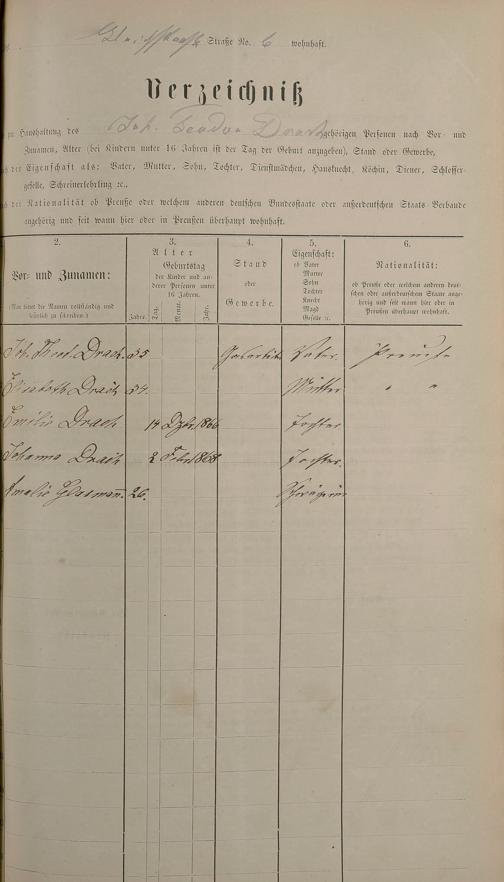 Straße No. 6 wohnhaft.
Verzeichniß
zu Haushaltung des Joh. Teodor Drach gehörigen Personen nach Vor- und
Zunamen, Alter (bei Kindern unter 16 Jahren ist der Tag der Geburt anzugeben), Stand oder Gewerbe,
der Eigenschaft als: Vater, Mutter, Sohn, Tochter, Dienstmädchen, Hausknecht, Köchin, Diener, Schlosser-
geselle, Schreinerlehrling ꝛc.,
der Nationalität ob Preuße oder welchem anderen deutschen Bundesstaate oder außerdeutschen Staats-Verbande
angehörig und seit wann hier oder in Preußen überhaupt wohnhaft.
2. 3. 4. 5. 6.
Vor- und Zunamen:
(Man bittet die Namen vollständig und
deutlich zu schreiben.)
Alter
Geburtstag
der Kinder und an-
derer Personen unter
16 Jahren.
Jahre. Tag. Monat. Jahr.
Stand
oder
Gewerbe.
Eigenschaft:
ob Vater
Mutter
Sohn
Tochter
Knecht
Magd
Geselle ꝛc.
Nationalität:
ob Preuße oder welchem anderen deut-
schen oder außerdeutschen Staate ange-
hörig und seit wann hier oder in
Preußen überhaupt wohnhaft.
Joh. Theod. Drach. 35 Vater. Preuße
Elisabeth Drach 34. Mutter " "
Emilie Drach 14 Dzbr. 1866 Tochter
Johanna Drach 2 Febr. 1868 Tochter.
Amalie Glasmann. 26. Schwägerin